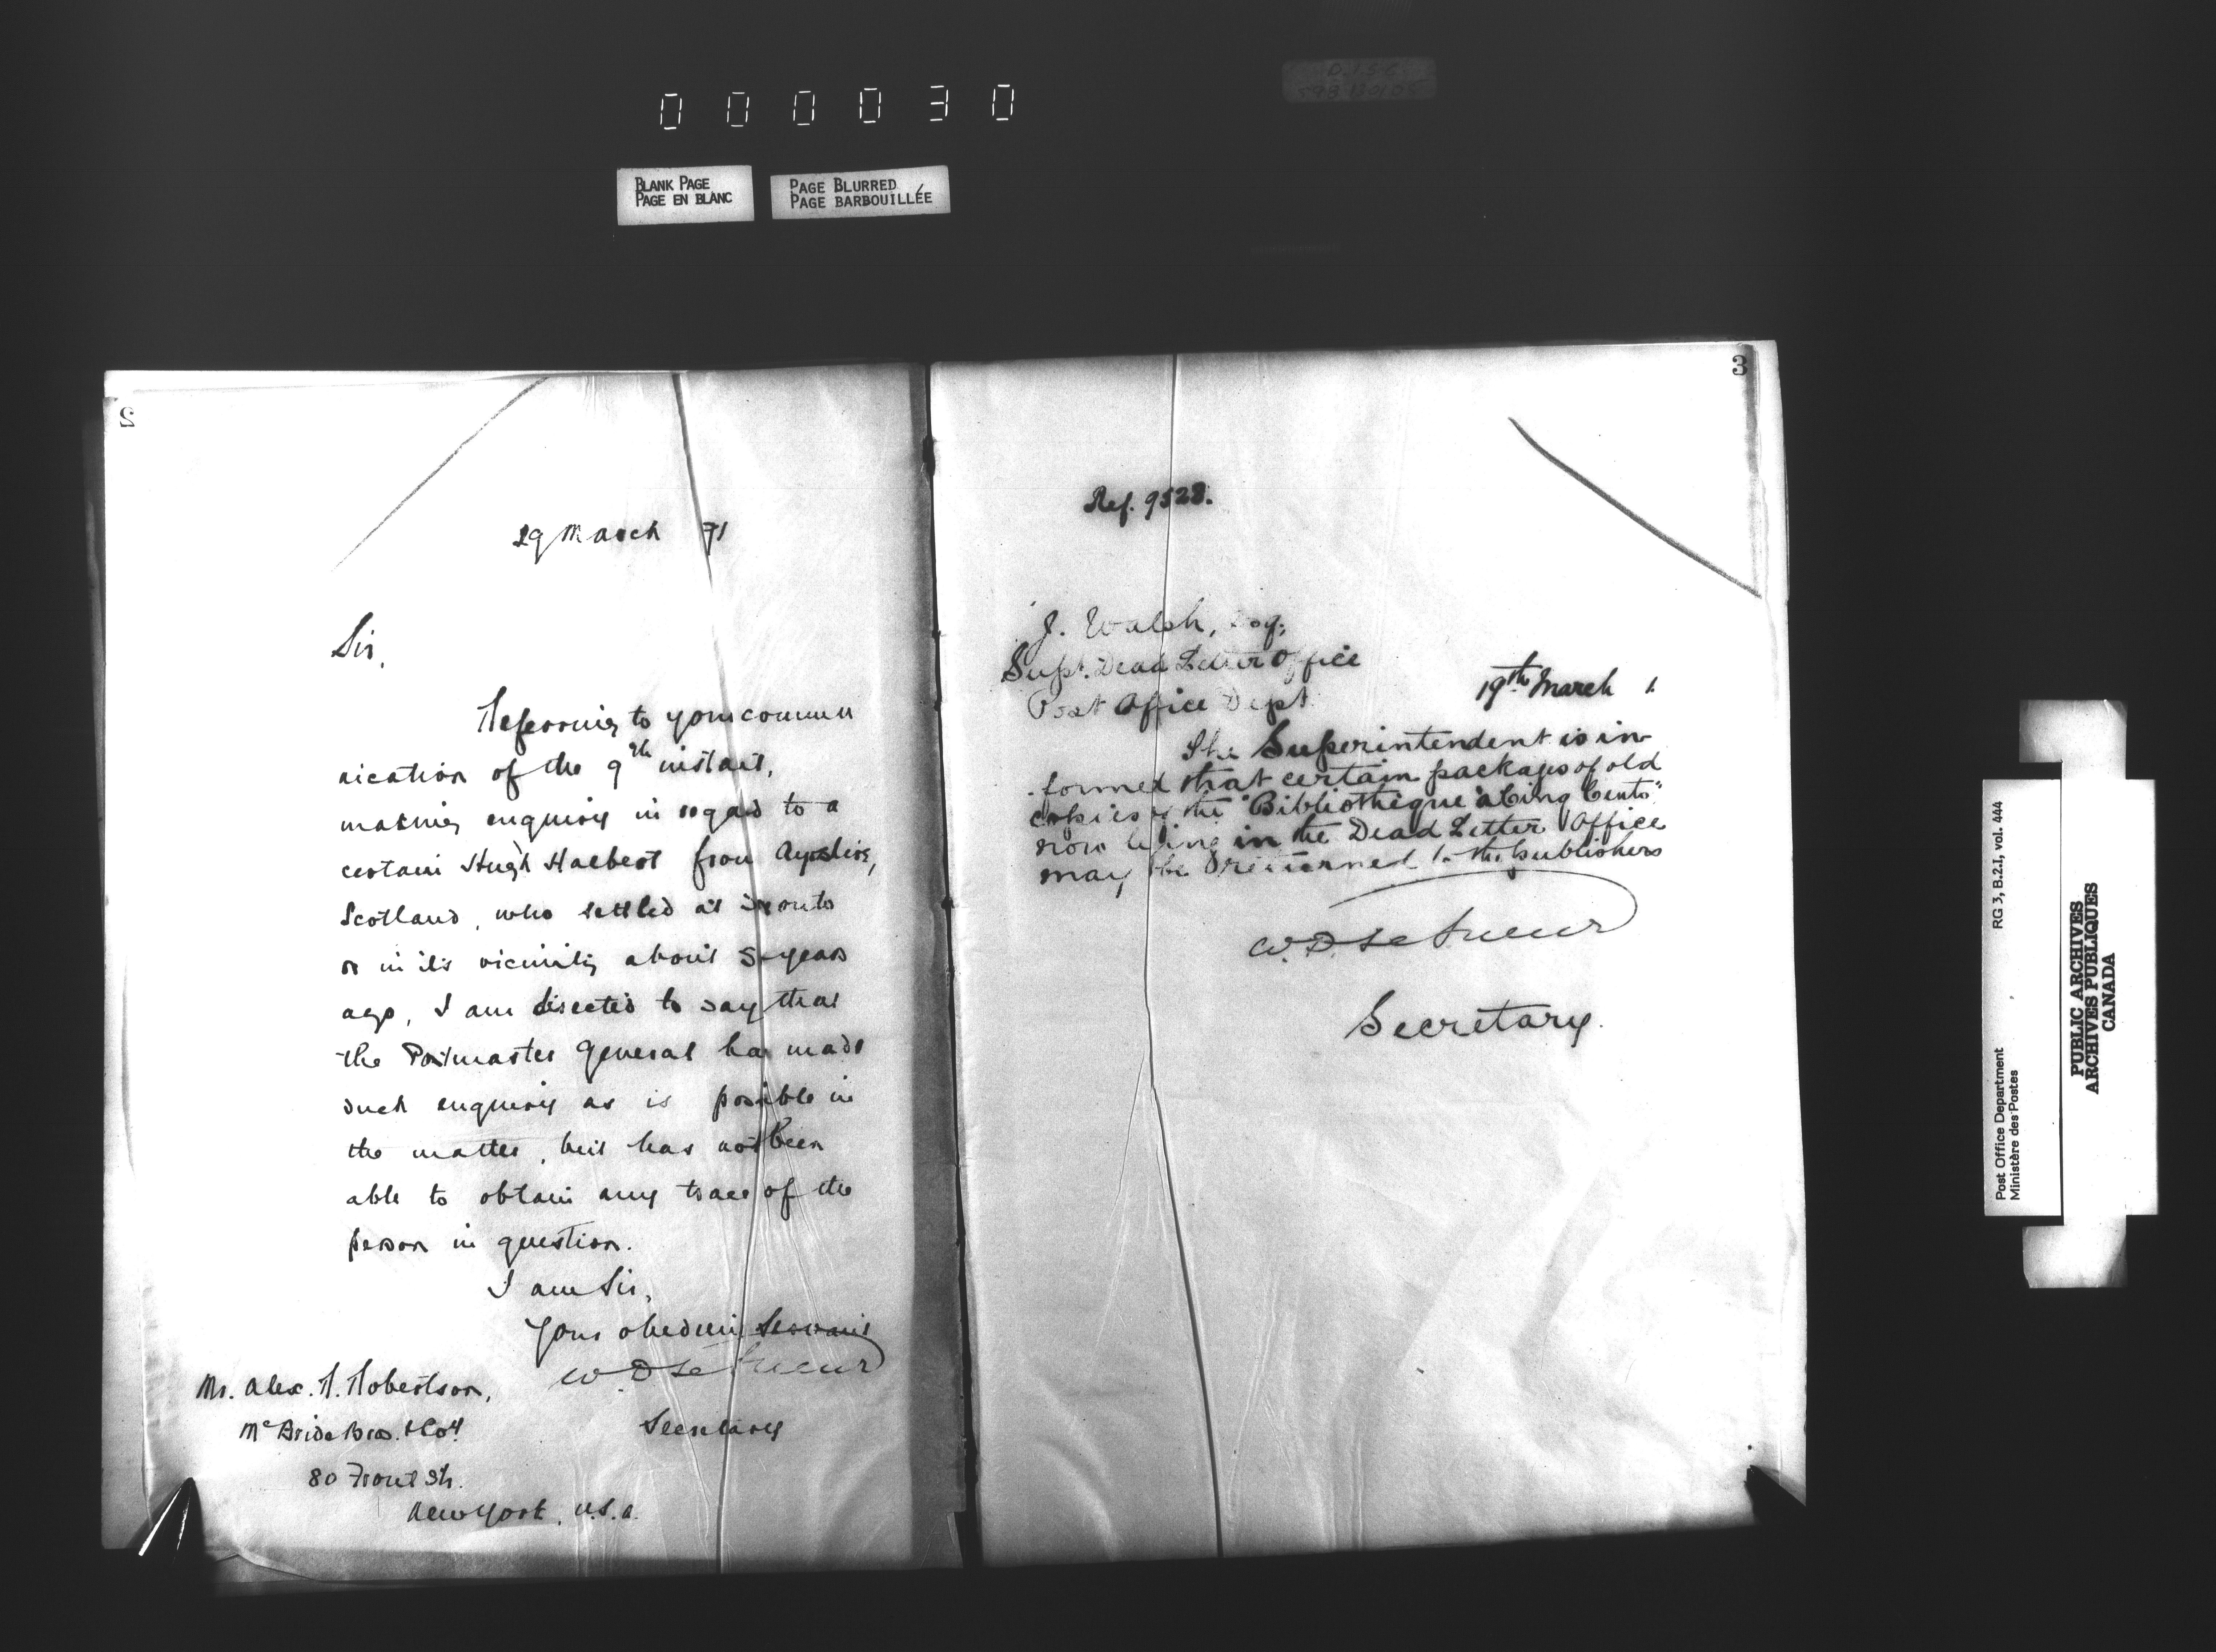 000030
BLANK PAGE
PAGE EN BLANC
PAGE BLURRED
PAGE BARBOUILLÉE
2
29 March 71
Sir,
Referring to your commu
nication of the 9th instant,
making enquiry in regard to a
certain Hugh Halbert from Ayrshire,
Scotland, who settled at Toronto
or in its vicinity about 5 years
ago, I am directed to say that
the Postmaster General has made
such enquiry as is possible in
the matter, but has not been
able to obtain any trace of the
person in question.
I am Sir,
Your obedient Servant
W D LeSueur
Secretary
Mr. Alex. R. Robertson,
McBride Bros. & Coy
80 Front St.
New York, U.S.A.
3
Ref. 9528.
J. Walsh, Esq;
Supt. Dead Letter Office
Post Office Dept
19th March 1.
The Superintendent is in-
formed that certain packages of old
copies of the "Bibliothèque à Cinq Cents"
now lying in the Dead Letter Office
may be returned to the publishers
W. D. LeSueur
Secretary.
Post Office Department RG 3, B.2.I, vol. 444
Ministère des Postes
PUBLIC ARCHIVES
ARCHIVES PUBLIQUES
CANADA